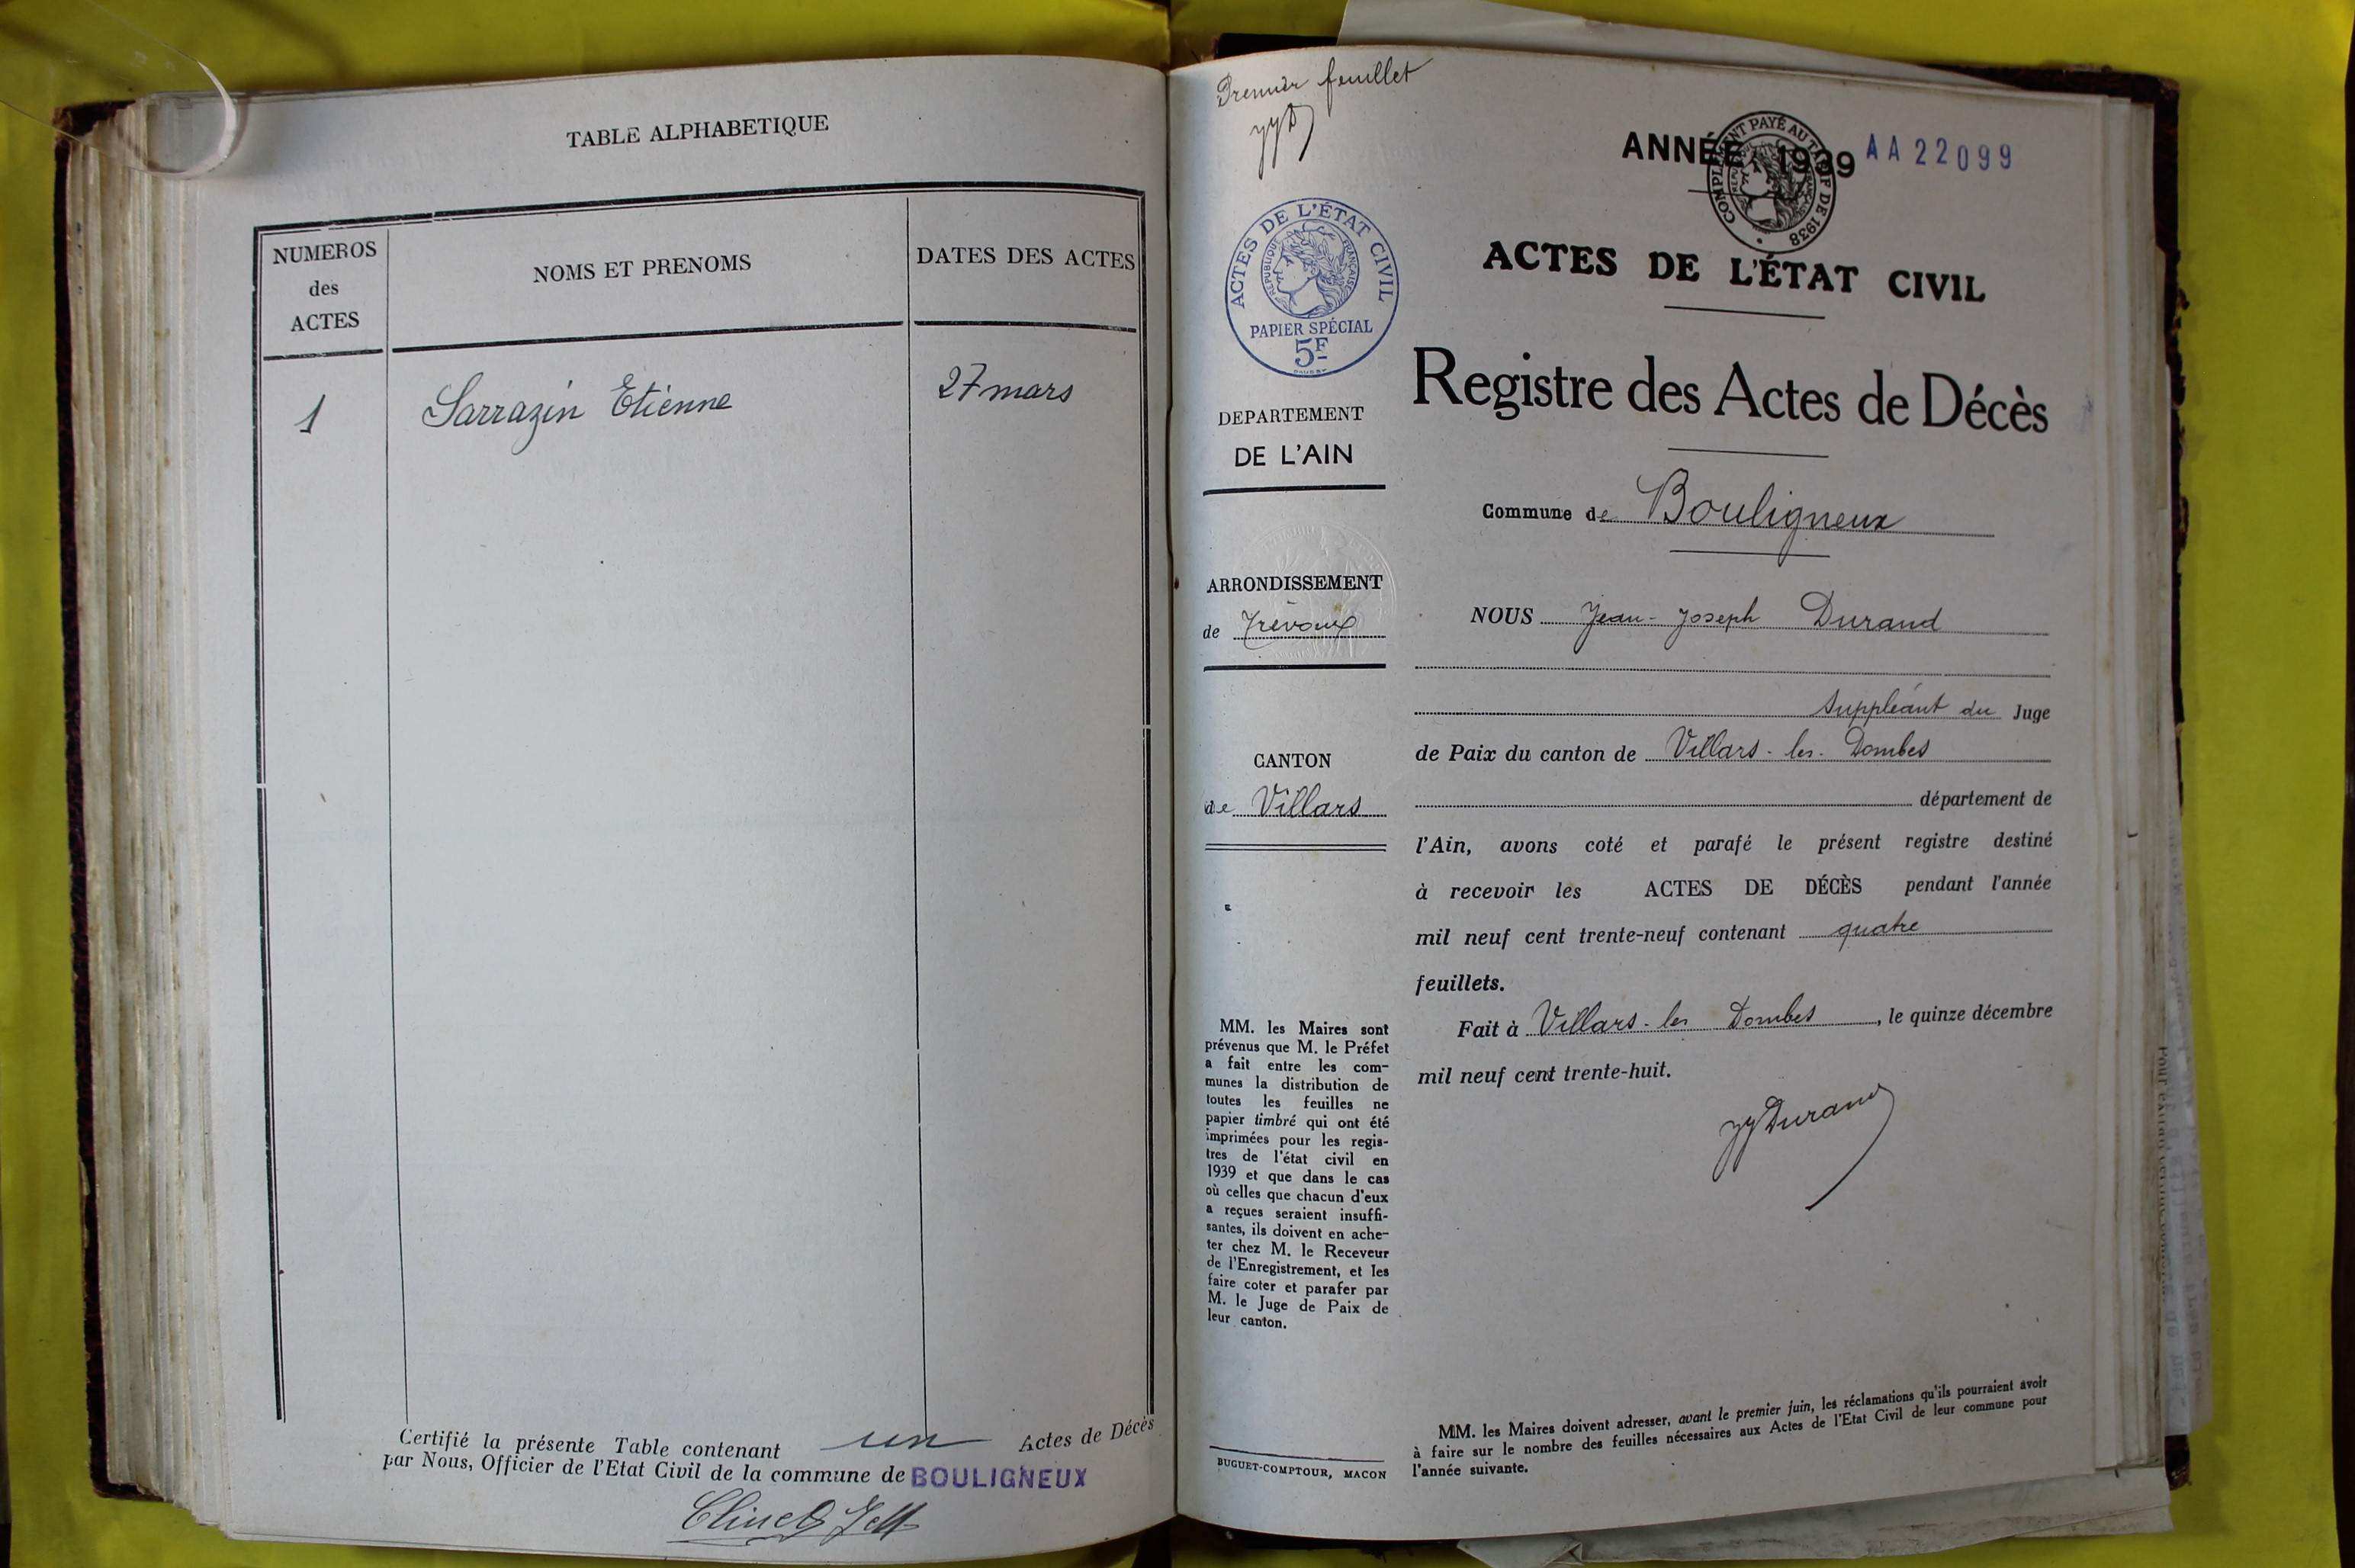 TABLE ALPHABETIQUE
NUMEROS
des
ACTES
NOMS ET PRENOMS
DATES DES ACTES
1 Sarrazin Etienne 27 mars
Certifié la présente Table contenant un Actes de Décès
par Nous, Officier de l'Etat Civil de la commune de BOULIGNEUX
Premier feuillet
JJD
ACTES DE L'ÉTAT CIVIL
RÉPUBLIQUE FRANÇAISE
PAPIER SPÉCIAL
5F
DEPARTEMENT
DE L'AIN
ARRONDISSEMENT
de Trévoux
CANTON
de Villars
MM. les Maires sont
prévenus que M. le Préfet
a fait entre les com-
munes la distribution de
toutes les feuilles ne
papier timbré qui ont été
imprimées pour les regis-
tres de l'état civil en
1939 et que dans le cas
où celles que chacun d'eux
a reçues seraient insuffi-
santes, ils doivent en ache-
ter chez M. le Receveur
de l'Enregistrement, et les
faire coter et parafer par
M. le Juge de Paix de
leur canton.
BUGUET-COMPTOUR, MACON
ANNÉE 1939 AA22099
COMPLÉMENT PAYÉ AU TARIF DE 1938
ACTES DE L'ÉTAT CIVIL
Registre des Actes de Décès
Commune de Bouligneux
NOUS Jean-Joseph Durand
suppléant du Juge
de Paix du canton de Villars-les-Dombes
département de
l'Ain, avons coté et parafé le présent registre destiné
à recevoir les ACTES DE DÉCÈS pendant l'année
mil neuf cent trente-neuf contenant quatre
feuillets.
Fait à Villars-les Dombes, le quinze décembre
mil neuf cent trente-huit.
JJDurand
MM. les Maires doivent adresser, avant le premier juin, les réclamations qu'ils pourraient avoir
à faire sur le nombre des feuilles nécessaires aux Actes de l'Etat Civil de leur commune pour
l'année suivante.